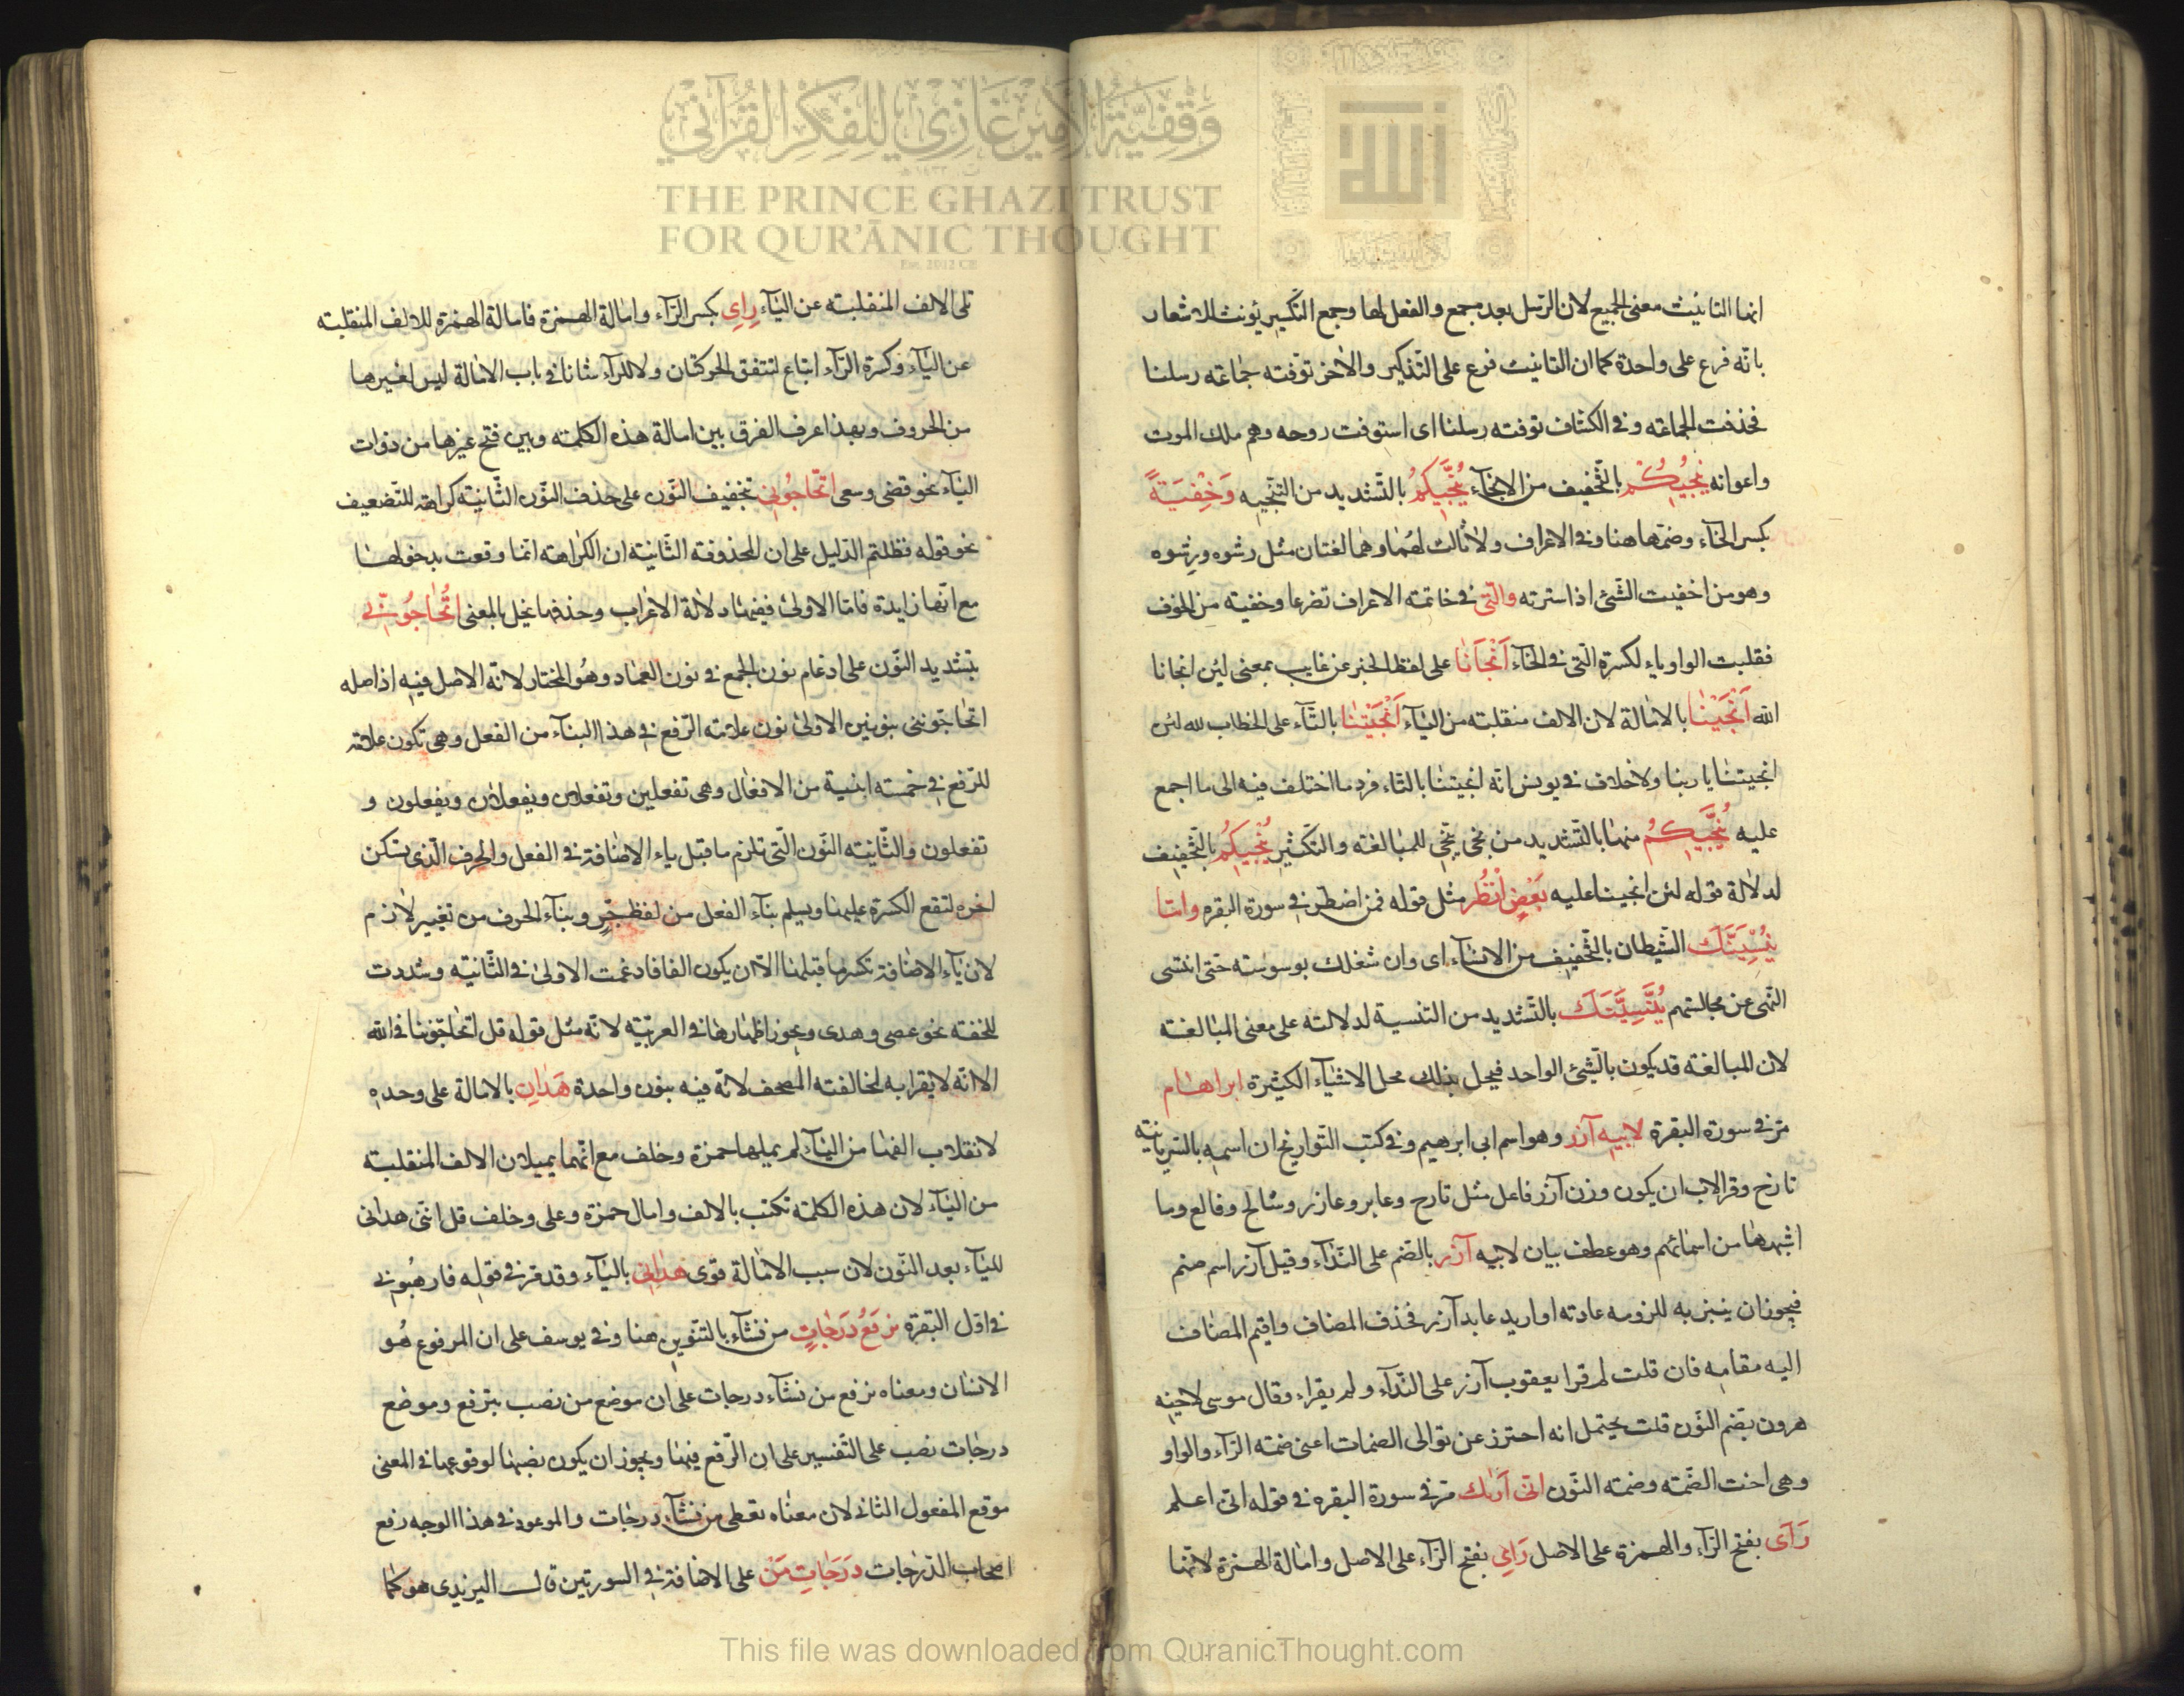 وقفية الأمير غازي للفكر القرآني
THE PRINCE GHAZI TRUST
FOR QUR'ĀNIC THOUGHT
Est. 2012 CE
الله
انها التانيث معنى الجميع لان الرسل بعد مجمع والفعل لها وجمع التكسير يؤنث للاشعار
بانه فرع على واحدة كما ان التانيث فرع على التذكير والاخر توفته جماعته رسلنا
فحذفت الجماعته وفى الكشاف توفته رسلنا اى استوفت روحه وهم ملك الموت
واعوانه ينجيكم بالتخفيف من الانجاء ينجيكم بالتشديد من التنجيه وخفية
بكسر الخاء وضمها هنا وفى الاعراف ولا ثالث لهما وهما لغتان مثل رشوه ورشوه
وهو من اخفيت الشئ اذا سترته والتى فى خاتمته الاعراف تضرعا وخفيه من الخوف
فقلبت الواو ياء لكسرة التى فى الخاء انجانا على لفظ الخبر عن غايب بمعنى لئن انجانا
الله انجينا بالامالة لان الالف منقلبته من الياء انجيتنا بالتاء على الخطاب لله لئن
انجيتنا يا ربنا ولا خلاف فى يونس انه انجيتنا بالتاء فرد ما اختلف فيه الى ما اجمع
عليه ينجيكم منها بالتشديد من نجى ينجى للمبالغته والتكثير ينجيكم بالتخفيف
لدلالة قوله لئن انجينا عليه بعض انظر مثل قوله فمن اضطر فى سورة البقره واما
ينسينك الشيطان بالتخفيف من الانساء اى وان شغلك بوسوسته حتى انتسى
النهى عن مجالستهم ينسينك بالتشديد من التنسية لدلالته على معنى المبالغته
لان المبالغته قد يكون بالشئ الواحد فيحل بذلك محل الاشياء الكثيرة ابراهام
مر فى سورة البقرة لابيه آزر وهو اسم ابى ابرهيم وفى كتب التواريخ ان اسمه بالسريانيته
تارخ وقر الاب ان يكون وزن آزر فاعل مثل تارح وعابر وعازر وشالخ وفالع وما
اشبهها من اسمائهم وهو عطف بيان لابيه آزر بالضم على النداء وقيل آزر اسم صنم
فيجوز ان ينبز به للزومه عادته او اريد عابد آزر فحذف المضاف واقيم المضاف
اليه مقامه فان قلت لم قرا يعقوب آزر على النداء ولم يقراء وقال موسى لاخيه
هرون بضم النون قلت يحتمل انه احترز عن توالى الضمات اعنى ضمته الراء والواو
وهى اخت الضمته وضمته النون انى اريك مر فى سورة البقره فى قوله انى اعلم
رآى بفتح الراء والهمزة على الاصل راى بفتح الراء على الاصل وامالة الهمزة لانها
تلى الالف المنقلبته عن الياء راى بكسر الراء وامالة الهمزة فامالة الهمزة للالف المنقلبته
عن الياء وكسرة الراء اتباع لتتفق الحركتان ولا للراء شانا فى باب الامالة ليس لغيرها
من الحروف وبهذا عرف الفرق بين امالة هذه الكلمته وبين فتح غيرها من ذوات
الياء نحو قضى وسعى اتحاجونى بتخفيف النون على حذف النون الثانيته كراهته للتضعيف
نحو قوله فظلتم الدليل على ان المحذوفته الثانيته ان الكراهته انما وقعت بدخولها
مع انها زايدة فاما الاولى ففيها دلالة الاعراب وحذفها يخل بالمعنى اتحاجونى
بتشديد النون على ادغام نون الجمع فى نون العماد وهو المختار لانه الاصل فيه اذ اصله
اتحاجوننى بنونين الاولى نون علامته الرفع فى هذا البناء من الفعل وهى تكون علامته
للرفع فى خمسته ابنية من الافعال وهى تفعلين وتفعلان ويفعلان ويفعلون و
تفعلون والثانيته النون التى تلزم ما قبل ياء الاضافة فى الفعل والحرف الذى يسكن
اخره لتقع الكسرة عليها ويسلم بناء الفعل من لفظ جر وبناء الحرف من تغيير لازم
لان ياء الاضافة تكسر ما قبلها الا ان يكون الفا فادغمت الاولى فى الثانيته وشددت
للخفته نحو عصى وهدى ويجوز اظهارها فى العربيته لانه مثل قوله قل اتحاجوننا فى الله
الا انه لا يقرا به لمخالفته المصحف لانه فيه بنون واحدة هدان بالامالة على وحده
لانقلاب الفها من الياء لم يملها حمزة وخلف مع انهما يميلان الالف المنقلبته
من الياء لان هذه الكلمته تكتب بالالف وامال حمزة وعلى وخلف قل انى هدانى
للياء بعد النون لان سبب الامالة قوى هدانى بالياء وقد مر فى قوله فارهبونى
فى اول البقرة نرفع درجات من نشاء بالتنوين هنا وفى يوسف على ان المرفوع هو
الانسان ومعناه نرفع من نشاء درجات على ان موضع من نصب بنرفع وموضع
درجات نصب على التفسير على ان الرفع فيها ويجوز ان يكون نصبها لوقوعها فى المعنى
موقع المفعول الثانى لان معناه نعطى من نشاء درجات والموعود فى هذا الوجه رفع
اصحاب الدرجات درجات من على الاضافة فى السورتين قال اليزيدى هو كما
This file was downloaded from QuranicThought.com